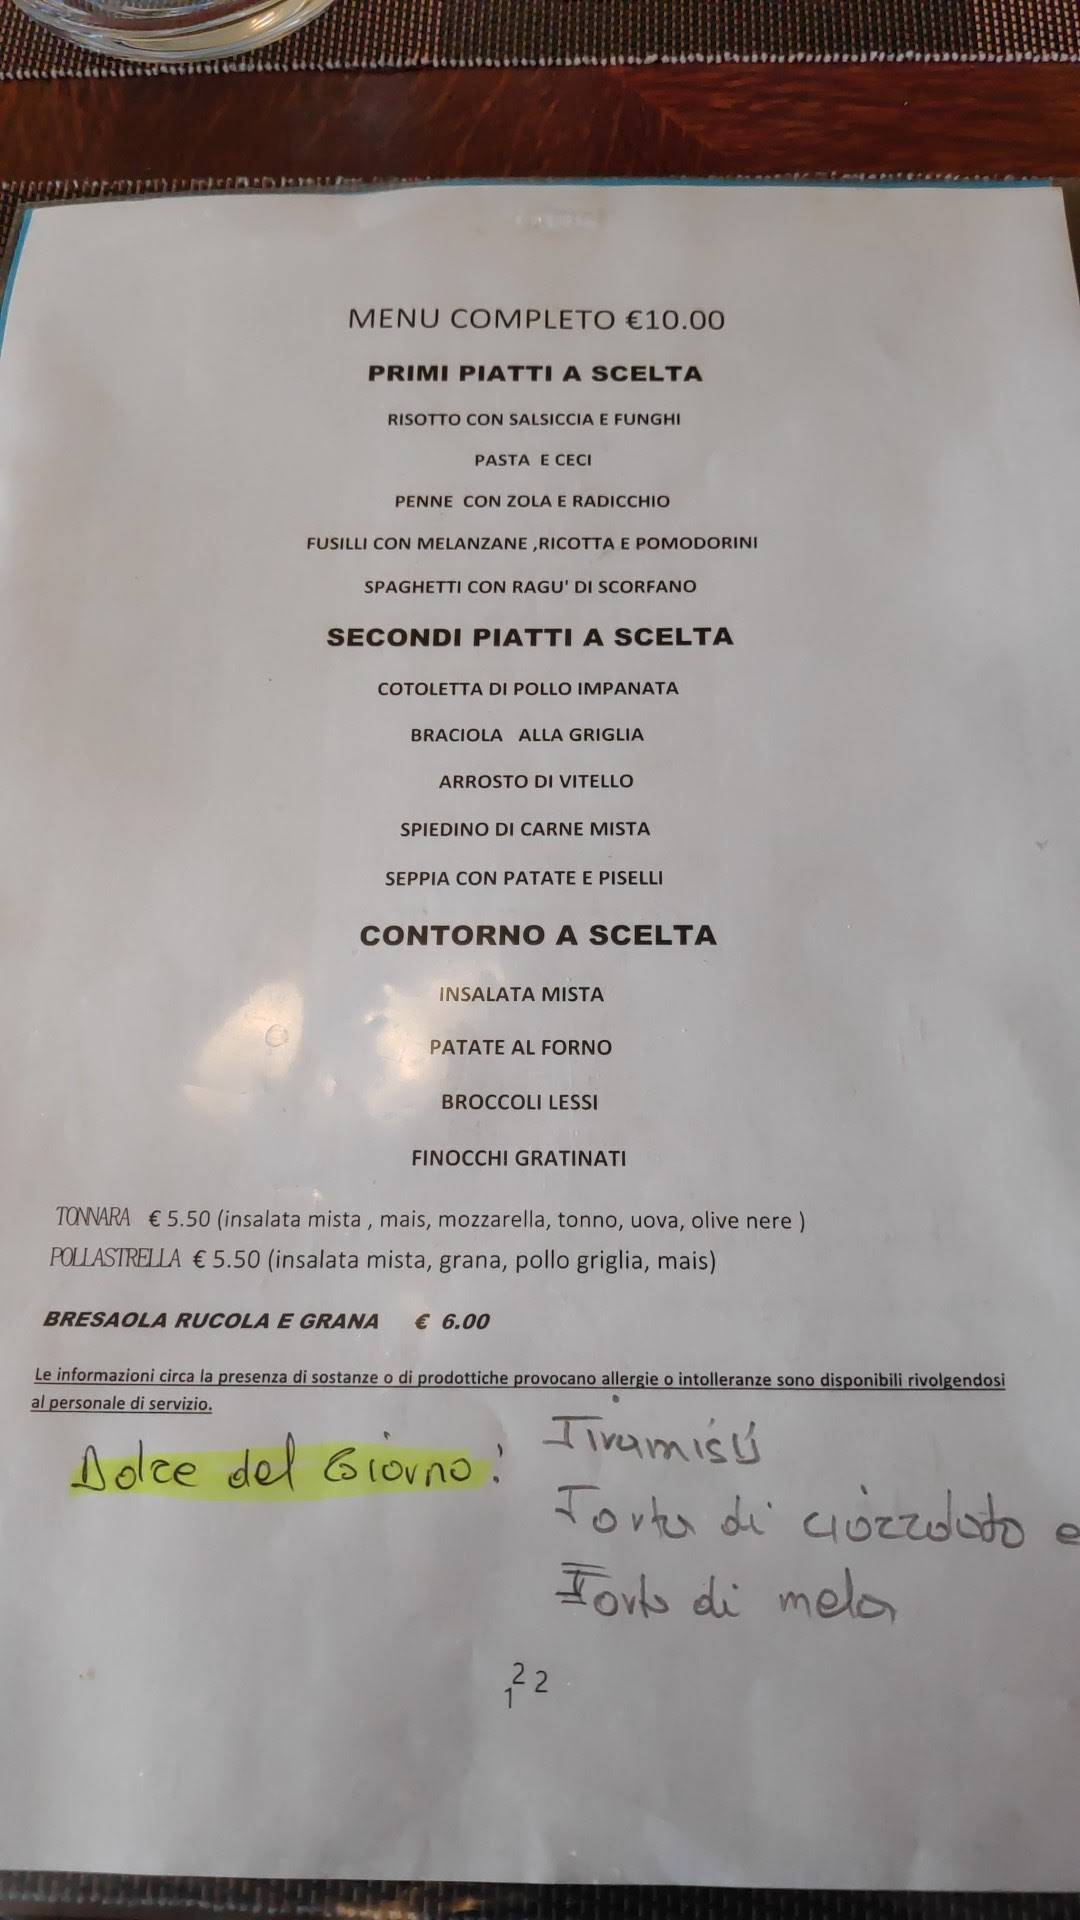 MENU COMPLETO €10.00
PRIMI PIATTI A SCELTA
RISOTTO CON SALSICCIA E FUNGHI
PASTA E CECI
PENNE CON ZOLA E RADICCHIO
FUSILLI CON MELANZANE ,RICOTTA E POMODORINI
SPAGHETTI CON RAGU' DI SCORFANO
SECONDI PIATTI A SCELTA
COTOLETTA DI POLLO IMPANATA
BRACIOLA ALLA GRIGLIA
ARROSTO DI VITELLO
SPIEDINO DI CARNE MISTA
SEPPIA CON PATATE E PISELLI
CONTORNO A SCELTA
INSALATA MISTA
PATATE AL FORNO
BROCCOLI LESSI
FINOCCHI GRATINATI
TONNARA € 5.50 (insalata mista , mais, mozzarella, tonno, uova, olive nere )
POLLASTRELLA € 5.50 (insalata mista, grana, pollo griglia, mais)
BRESAOLA RUCOLA E GRANA € 6.00
Le informazioni circa la presenza di sostanze o di prodottiche provocano allergie o intolleranze sono disponibili rivolgendosi
al personale di servizio.
Dolce del Giorno: Tiramisù
Torta di ciozzolato e
Torta di mela
1 2 2